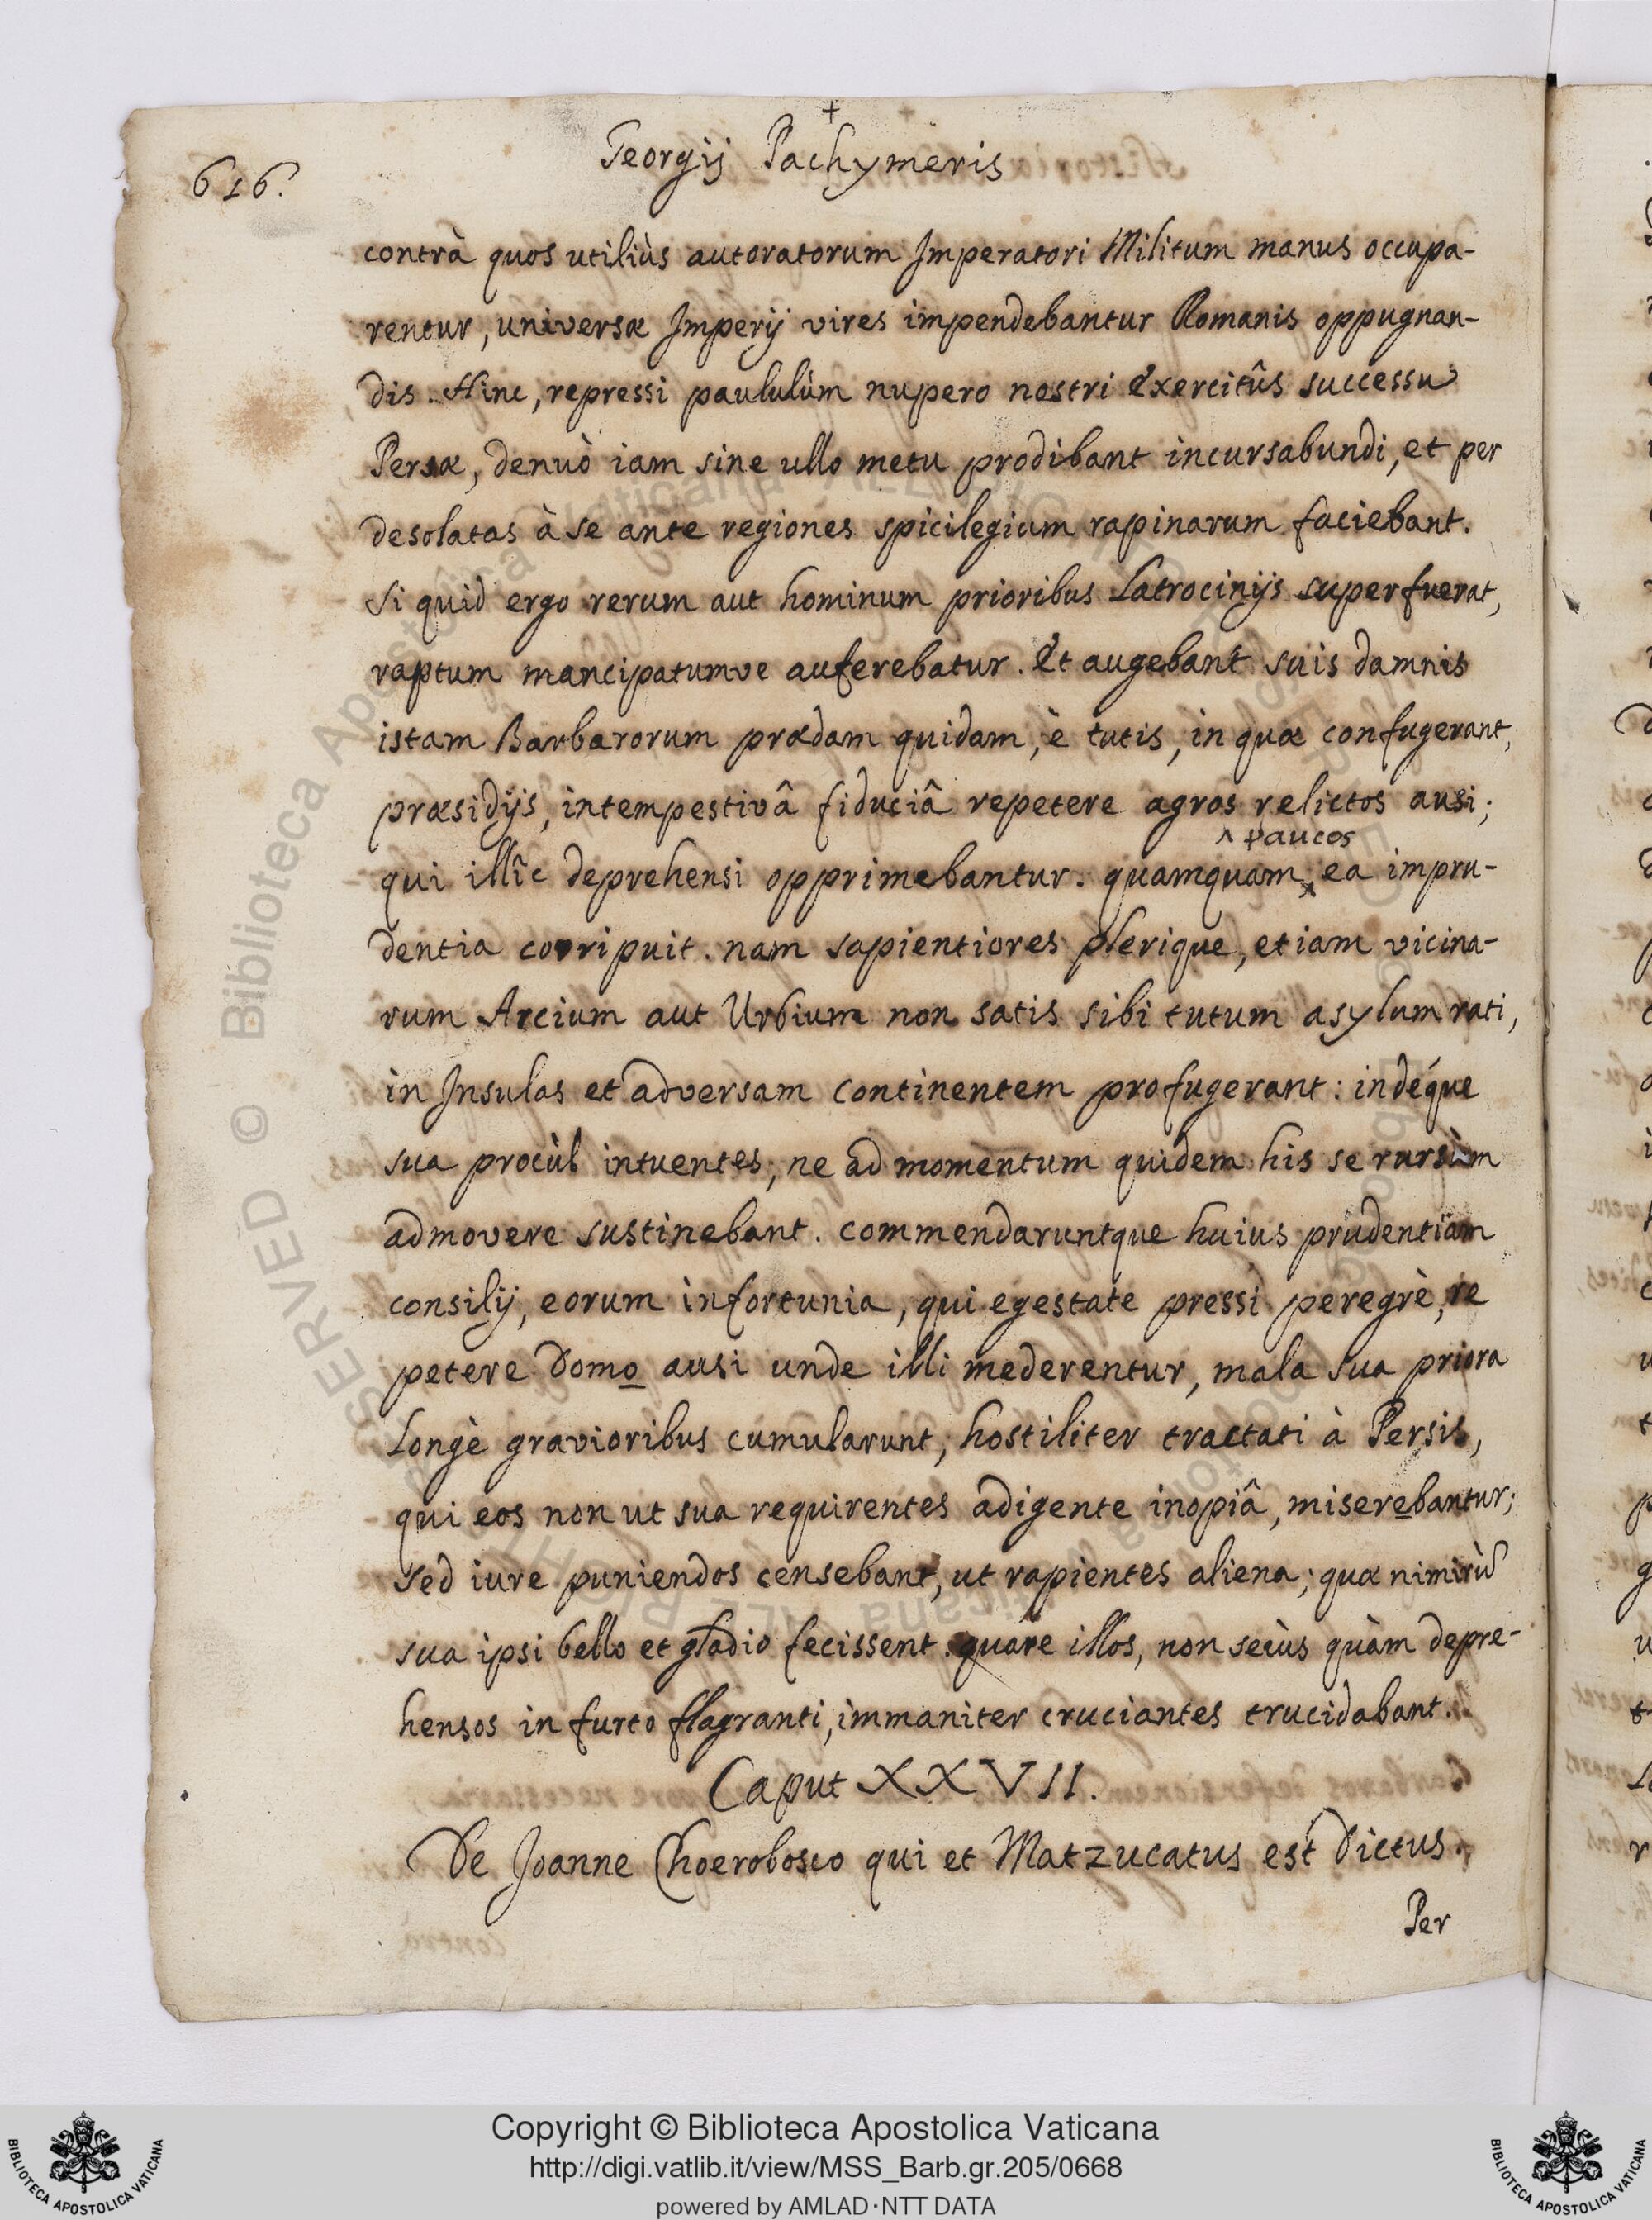 +
616.
Georgij Pachymeris
contrà quos utiliùs autoratorum Imperatori Militum manus occupa-
rentur, universæ Imperij vires impendebantur Romanis oppugnan-
dis. Hinc, repressi paululùm nupero nostri Exercitûs successu
Persæ, denuò iam sine ullo metu prodibant incursabundi, et per
desolatas à se ante regiones spicilegium rapinarum faciebant.
Si quid ergo rerum aut hominum prioribus Latrocinijs superfuerat,
raptum mancipatumve auferebatur. Et augebant suis damnis
istam Barbarorum prædam quidam, è tutis, in quæ confugerant,
præsidijs, intempestivâ fiduciâ repetere agros relictos ausi;
^ paucos
qui illîc deprehensi opprimebantur. quamquam ea impru-
dentia corripuit. nam sapientiores plerique, etiam vicina-
rum Arcium aut Urbium non satis sibi tutum asylum rati,
in Insulas et adversam continentem profugerant: indéque
sua procùl intuentes, ne ad momentum quidem his se rursùm
admovere sustinebant. commendaruntque huius prudentiam
consilij, eorum infortunia, qui egestate pressi peregrè, re
petere domo ausi unde illi mederentur, mala sua priora
Longè gravioribus cumularunt, hostiliter tractati à Persis,
qui eos non ut sua requirentes adigente inopiâ, miserebantur;
sed iure puniendos censebant, ut rapientes aliena; quæ nimirũ
sua ipsi bello et gladio fecissent. quare illos, non secùs quàm depre-
hensos in furto flagranti, immaniter cruciantes trucidabant.
Caput XXVII.
De Joanne Choerobosco qui et Matzucatus est dictus.
Per
Copyright © Biblioteca Apostolica Vaticana
http://digi.vatlib.it/view/MSS_Barb.gr.205/0668
powered by AMLAD·NTT DATA
BIBLIOTECA APOSTOLICA VATICANA
BIBLIOTECA APOSTOLICA VATICANA